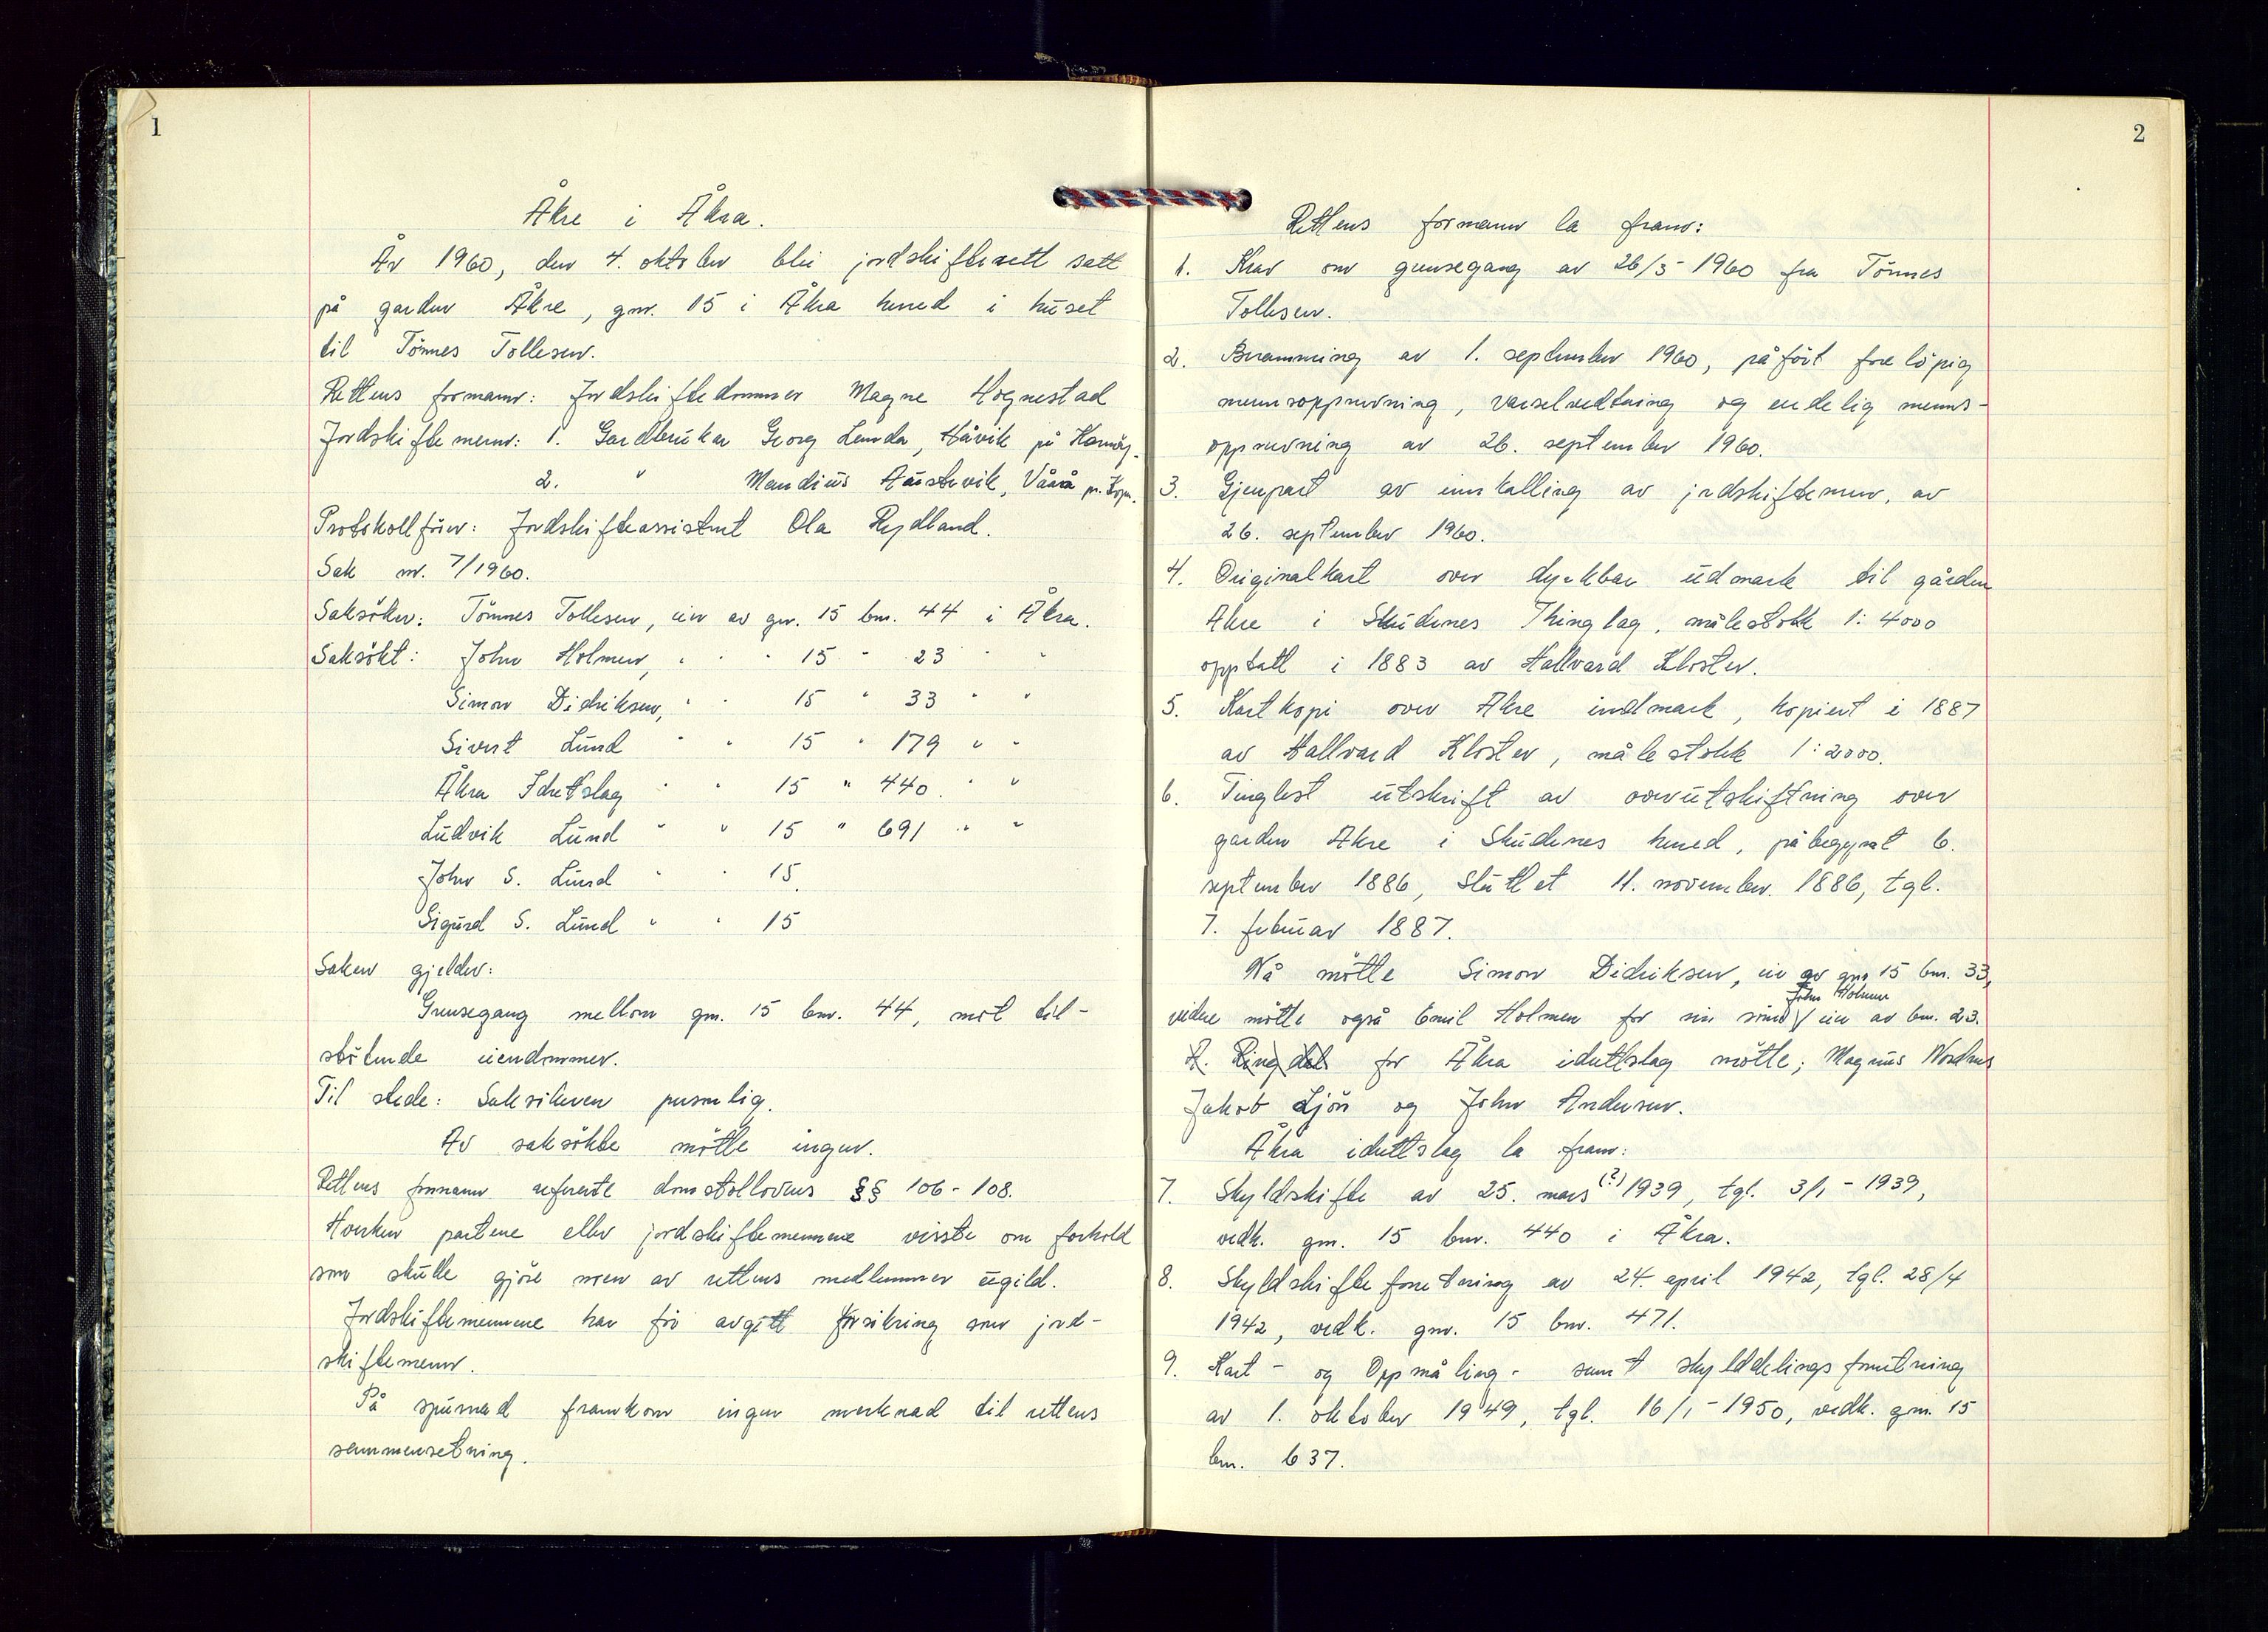 1
Åkre i Åkra.
År 1960, den 4. oktober ble jordskifterett satt
på garden Åkre, gnr. 15 i Åkra herred i huset
til Tönnes Tollesen.
Rettens formann: Jordskiftedommer Magne Hognestad
Jordskiftemenn: 1. Gardbruker Georg Lunde, Håvik på Karmöy.
2. " Mandius Austevik, Våra pr. Kopn.
Protokollförer: Jordskifteassistent Ola Rydland.
Sak nr. 7/1960.
Saksöker: Tönnes Tollesen, eier av gnr. 15 bnr. 44 i Åkra.
Saksökt: John Holmen, " " 15 " 23 " "
Simon Didriksen, " " 15 " 33 " "
Sivert Lund " " 15 " 179 " "
Åkra Idrettslag " " 15 " 440 " "
Ludvik Lund " " 15 " 691 " "
John S. Lund " " 15
Sigurd S. Lund " " 15
Saken gjelder:
Grensegang mellom gnr. 15 bnr. 44, mot til-
stötende eiendommer.
Til stede: Saksökeren personlig.
Av saksökte mötte ingen.
Rettens formann refererte domstollovens §§ 106-108.
Hverken partene eller jordskiftemennene visste om forhold
som skulle gjöre noen av rettens medlemmer ugild.
Jordskiftemennene har för avgitt forsikring som jord-
skiftemenn.
På spörsmål framkom ingen merknad til rettens
sammensetning.
2
Rettens formann la fram:
1. Krav om grensegang av 26/5-1960 fra Tönnes
Tollesen.
2. Beramming av 1. september 1960, påfört forelöpig
mennsoppnevning, varselvedtaing og endelig menns-
oppnevning av 26. september 1960.
3. Gjenpart av innkalling av jordskiftemenn, av
26. september 1960.
4. Originalkart over dyrkbar udmark til gården
Åkre i Skudenes Thinglag, målestokk 1: 4000
opptatt i 1883 av Hallvard Kloster.
5. Kartkopi over Åkre indmark, kopiert i 1887
av Hallvard Kloster, målestokk 1:2000.
6. Tinglest utskrift av overutskiftning over
garden Åkre i Skudenes herred, påbegynt 6.
september 1886, sluttet 11. november 1886, tgl.
7. februar 1887.
Nå mötte Simon Didriksen, eier av gnr 15 bnr. 33,
videre mötte også Emil Holmen for sin sönn John Holmen eier av bnr. 23.
R. Ringdal for Åkra idrettslag mötte; Magnus Nordnes
Jakob Ljön og John Andersen.
Åkra idrettslag la fram:
7. Skyldskifte av 25. mars (?) 1939, tgl. 3/1-1939,
vedk. gnr. 15 bnr. 440 i Åkra.
8. Skyldskifteforretning av 24. april 1942, tgl. 28/4
1942, vedk. gnr. 15 bnr. 471.
9. Kart- og Oppmåling- samt skylddelingsforretning
av 1. oktober 1949, tgl. 16/1-1950, vedk. gnr. 15
bnr. 637.